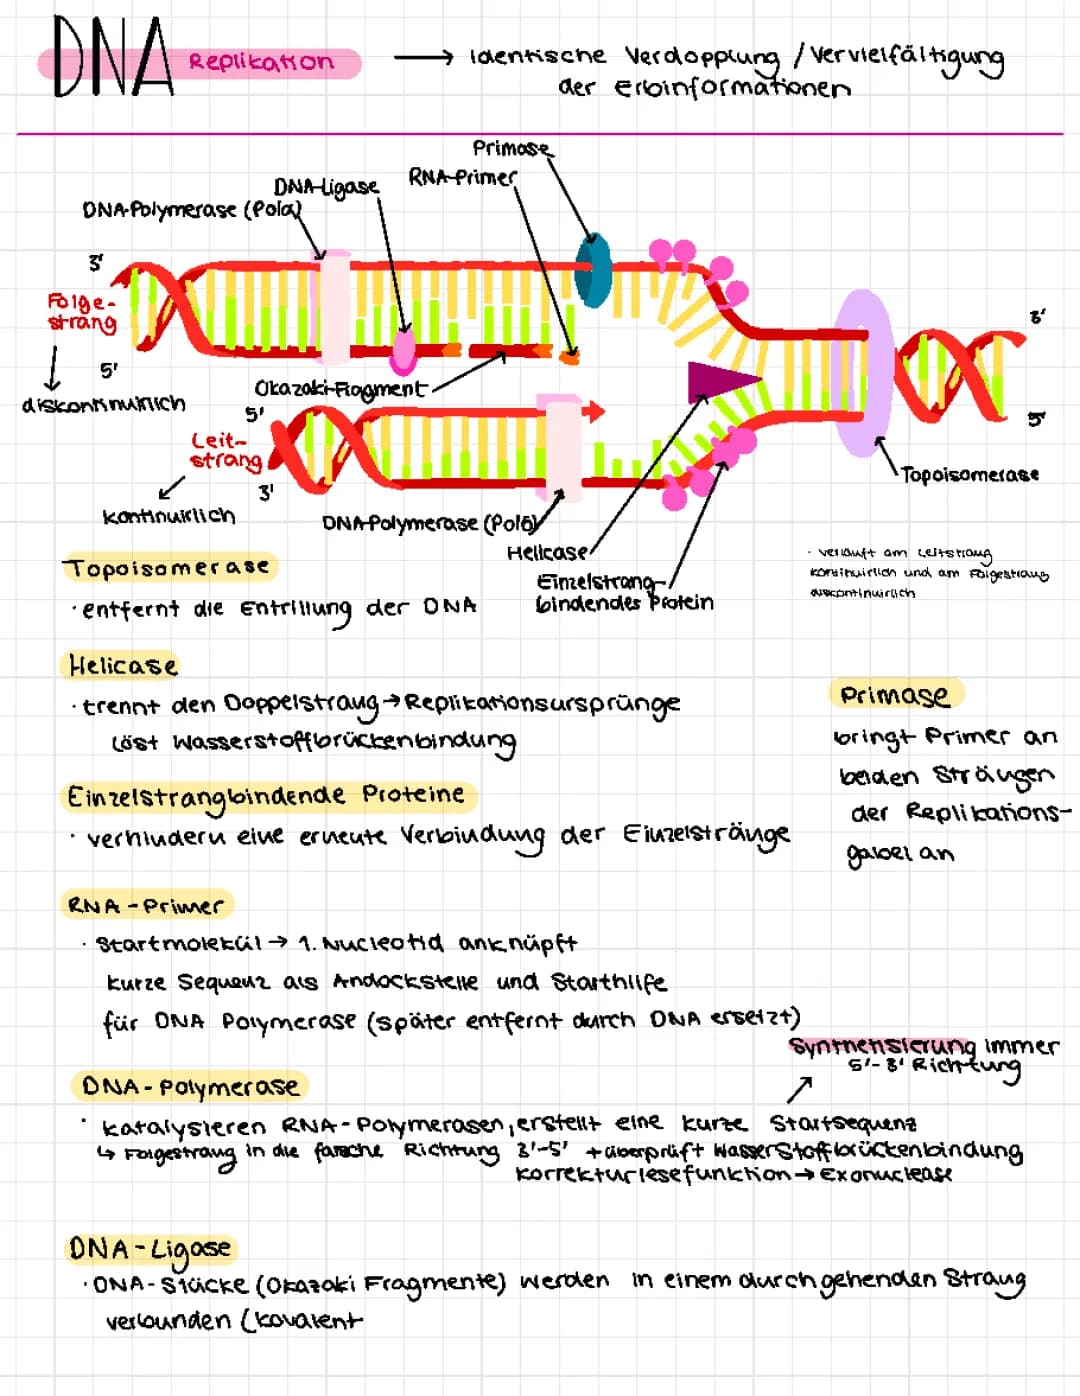 DNA Replikation → Identische Verdopplung / Vervielfältigung
der Erbinformationen
Primase
RNA-Primer
DNA-Ligase
DNA-Polymerase (Polα)
3'
Folge-
strang
5'
diskontinuirlich
Okazaki-Fragment
5'
Leit-
strang
3'
kontinuirlich
DNA-Polymerase (Polδ)
Helicase
Einzelstrang-
bindendes Protein
3'
5'
Topoisomerase
· verläuft am Leitstrang
kontinuirlich und am Folgestrang
diskontinuirlich
Topoisomerase
· entfernt die Entrillung der DNA
Helicase
· trennt den Doppelstrang → Replikationsursprünge
löst Wasserstoffbrückenbindung
Primase
bringt Primer an
beiden Strängen
der Replikations-
gabel an
Einzelstrangbindende Proteine
· verhindern eine erneute Verbindung der Einzelstränge
RNA-Primer
· Startmolekül → 1. Nucleotid anknüpft
kurze Sequenz als Andockstelle und Starthilfe
für DNA Polymerase (später entfernt durch DNA ersetzt)
Synthetisierung immer
5'-3' Richtung
DNA-Polymerase
· katalysieren RNA-Polymerasen, erstellt eine kurze Startsequenz
↳ Folgestrang in die falsche Richtung 3'-5' + überprüft Wasserstoffbrückenbindung
korrekturlesefunktion → Exonuclease
DNA-Ligase
· DNA-Stücke (Okazaki Fragmente) werden in einem durchgehenden Strang
verbunden (kovalent